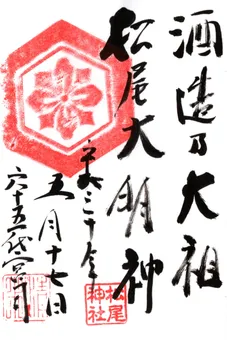 酒造乃大祖
松尾大明神
平成二十年
五月十七日
六十五代宮司
松尾
神社